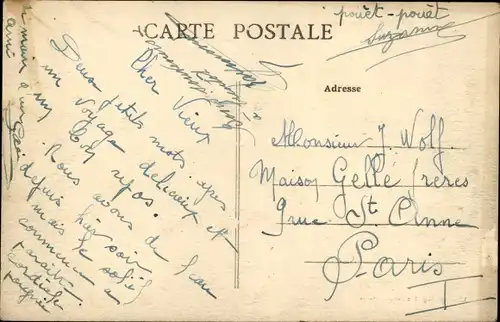 CARTE POSTALE
pouèt-pouèt
Suzanne
Adresse
Monsieur J. Wolf
Maison Gellé frères
9 rue St Anne
Paris
I
Cher Vieux
Deux petits mots après
un voyage délicieux et
un bon repos.
Nous avons de l'eau
depuis hier soir
mais le soleil
commence à
paraître
Cordiale
poignée
de main d'un
ami